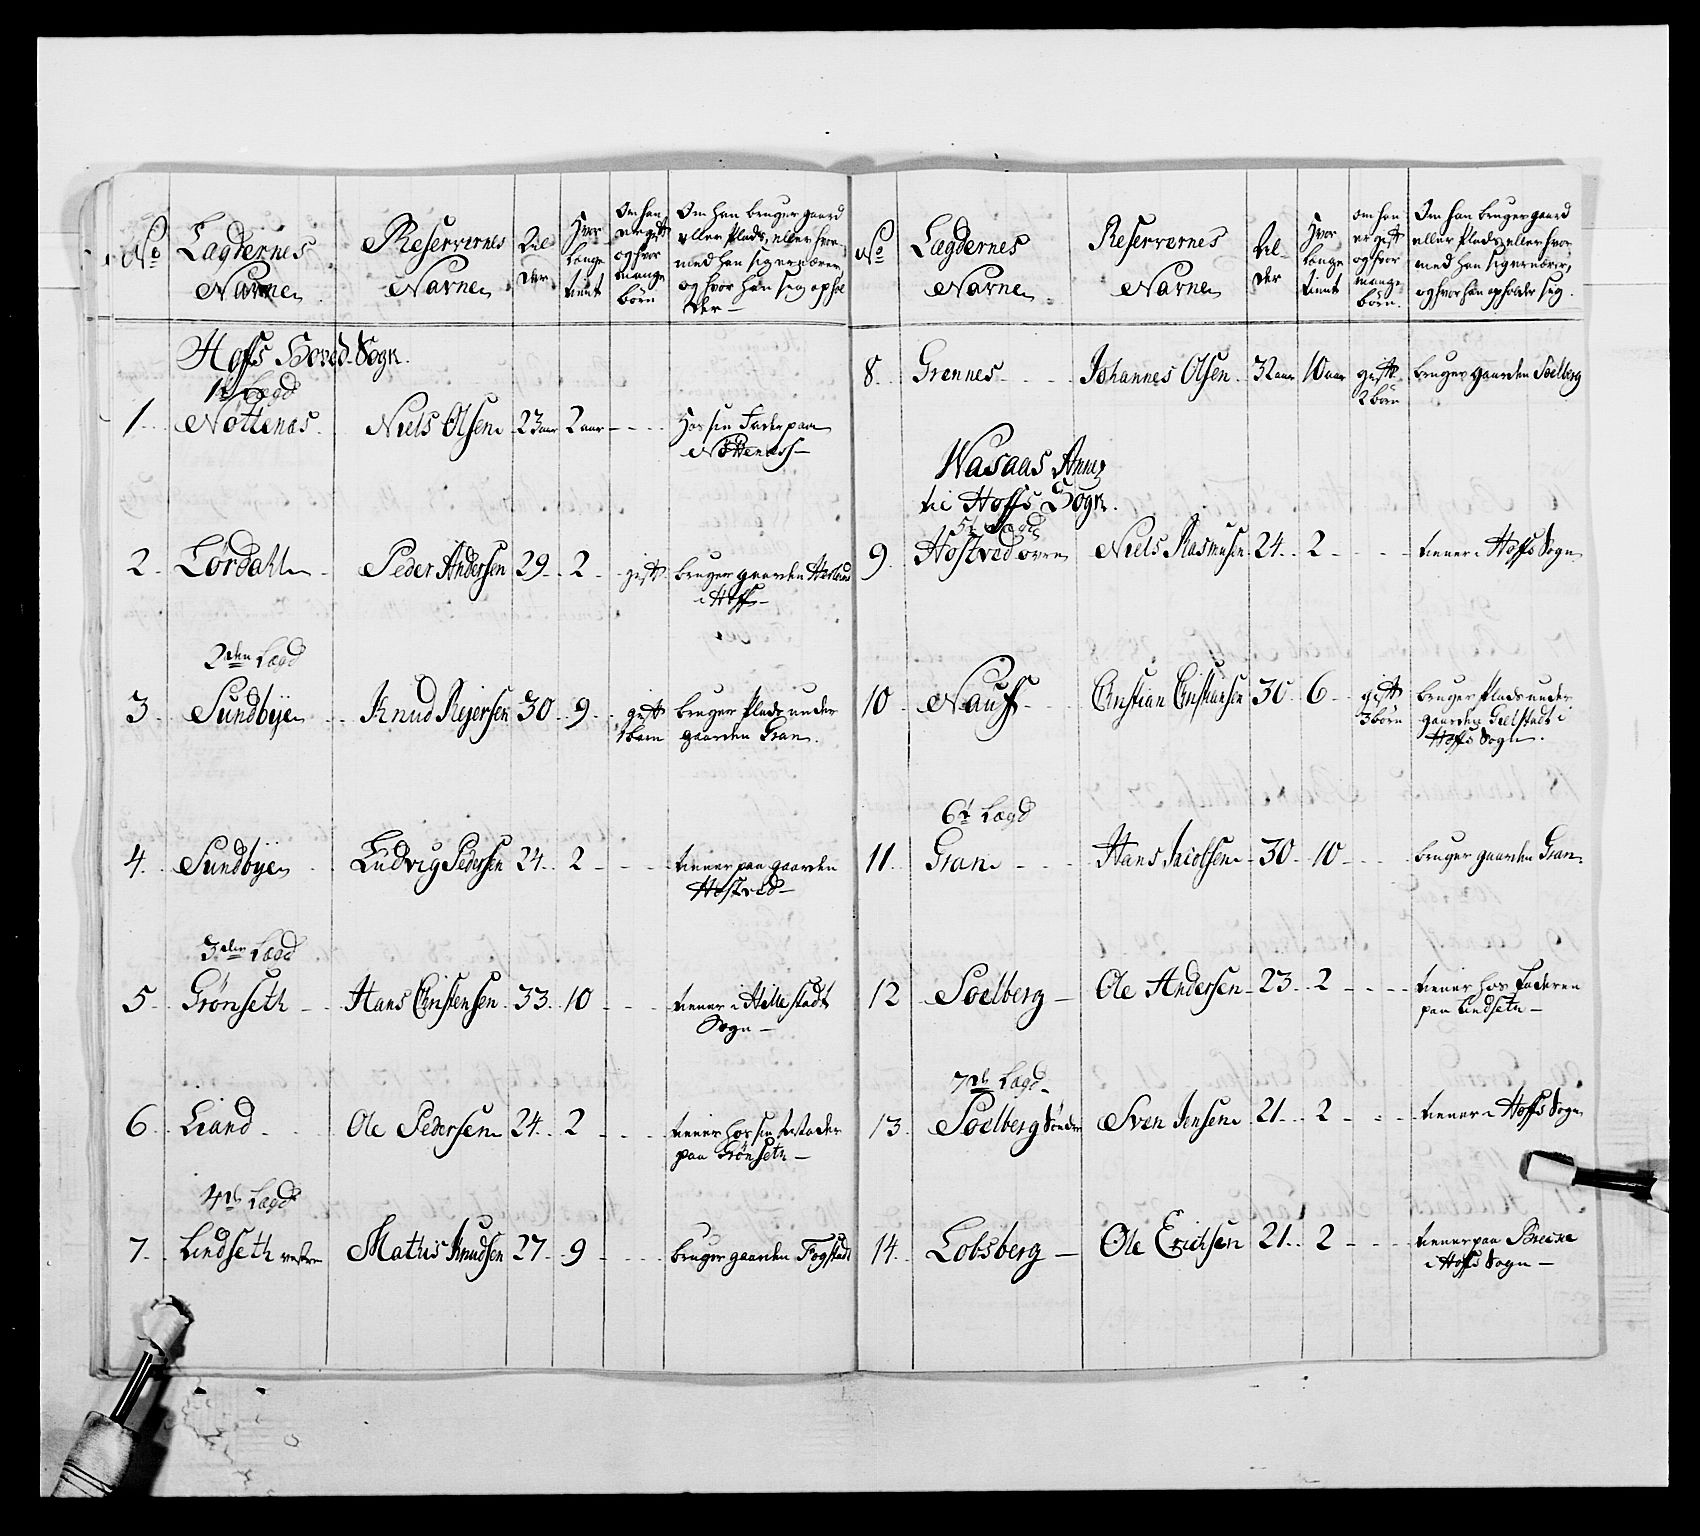 No
Lægdernes
Navne
Reservernes
Navne
Al-
der
Hvor
længe
tient
Om han
er gift
og hvor
mange
børn
Om han bruger gaard
eller Plads, eller hvor-
med han sig ernærer
og hvor han sig ophol
der —
Hoffs Hoved-Sogn.
1t Lægd
1 Nøttenæs. Niels Olsen 23 aar 2 aar
Hos sin Fader paa
Nøttenæss —
2 Lørdahl Peder Andersen 29 2 gift bruger gaarden
i Hoff —
2den Lægd
3 Sundbÿe Knud Rejersen 30 9 gift bruger Plads under
1 barn gaarden Gran.
4 Sundbÿe Ludvig Pedersen 24 2 tiener paa gaarden
Hostved —
3die Lægd
5 Grønseth Hans Christensen 33 10 tiener i Hillestadt
Sogn —
6 Liand Ole Pedersen 24 2 tiener hos sin
paa Grønseth —
4de Lægd
7 Lindseth vestre Mathis Knudsen 27 9 bruger gaarden Fogstad
No
Lægdernes
Navne
Reservernes
Navne
Al-
der
Hvor
længe
tient
om han
er gift
og hvor
mange
børn.
Om han bruger gaard
eller Plads, eller hvor
med han sig ernærer,
og hvor han opholder sig.
8 Grennes Johannes Olsen 32 aar 10 aar gift bruger gaarden Soelberg
2 børn
Wasaas Annex
til Hoffs Sogn.
5t Lægd
9 Hostved øvre Niels Rasmusen 24 2 tiener i Hoffs Sogn
10 Nauf Christian Christiansen 30 6 gift bruger Plads under
3 børn gaarden Gielstadt i
Hoffs Sogn.
6t Lægd
11 Gran Hans Nielsen 30 10 bruger gaarden Gran
12 Soelberg — Ole Andersen 23 2 tiener hos Faderen
paa Lindseth —
7de Lægd
13 Soelberg Søndre Sven Jensen 21 2 tiener i Hoffs Sogn
14 Lobsberg — Ole Erichsen 21 2 tiener paa
i Hoffs Sogn —